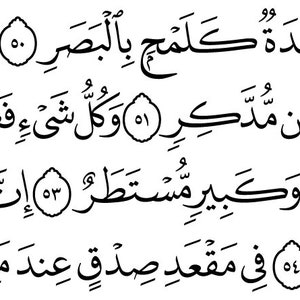 ـدَةٌ كَلَمْحٍ بِٱلْبَصَرِ ۝٥٠
ـن مُّدَّكِرٍ ۝٥١ وَكُلُّ شَىْءٍ فَـ
وَكَبِيرٍ مُّسْتَطَرٌ ۝٥٣ إِنَّ
۝٥٤ فِى مَقْعَدِ صِدْقٍ عِندَ مَـ